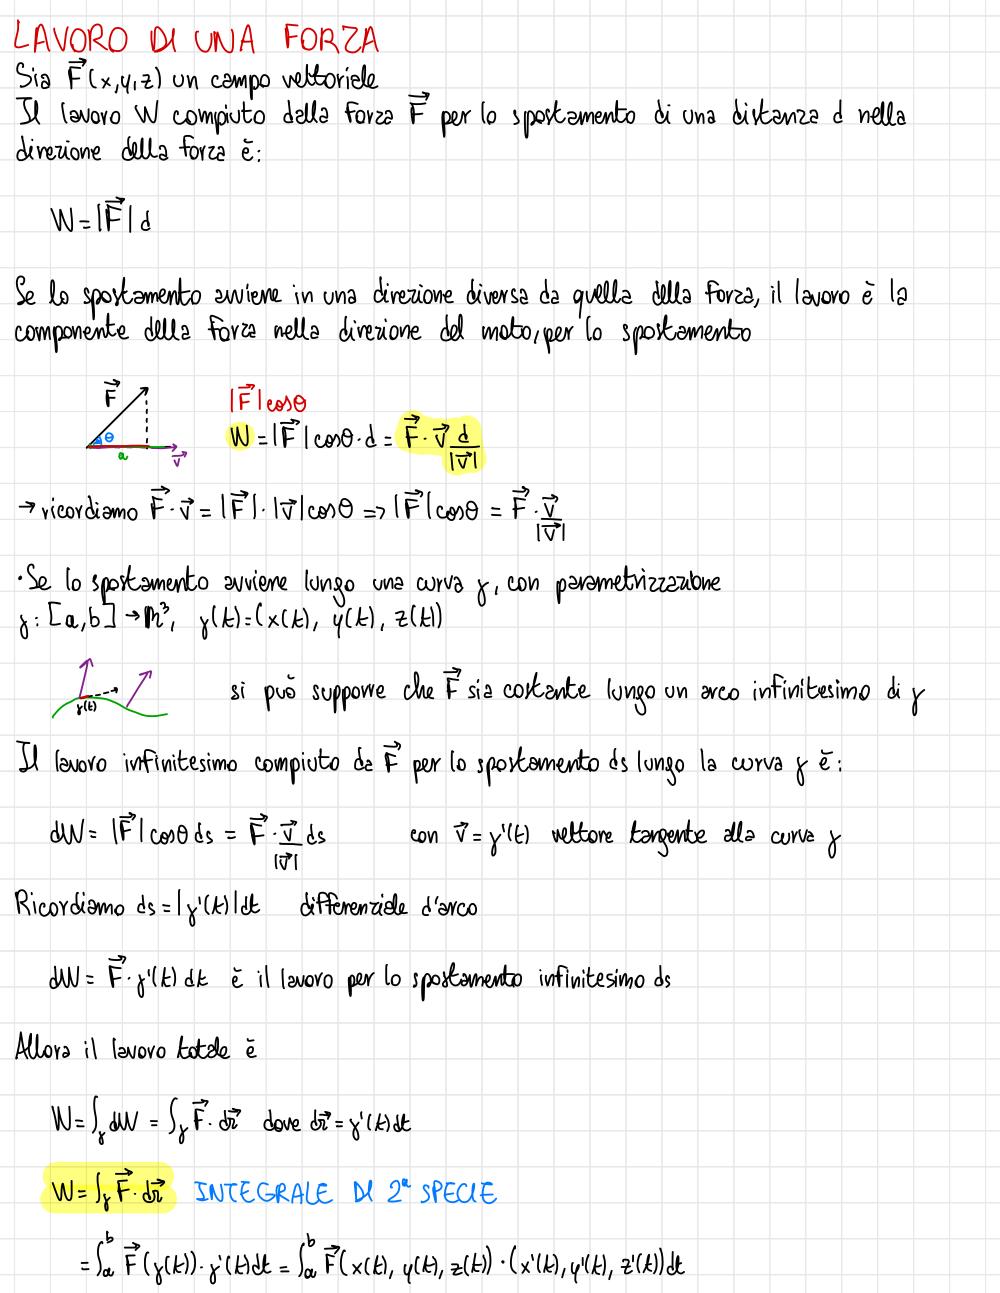 LAVORO DI UNA FORZA
Sia F⃗(x,y,z) un campo vettoriale
Il lavoro W compiuto dalla forza F⃗ per lo spostamento di una distanza d nella
direzione della forza è:
W=|F⃗|d
Se lo spostamento avviene in una direzione diversa da quella della forza, il lavoro è la
componente della forza nella direzione del moto, per lo spostamento
F⃗
θ
a
v⃗
|F⃗|cosθ
W=|F⃗|cosθ·d = F⃗·v⃗ d/|v⃗|
→ ricordiamo F⃗·v⃗ = |F⃗|·|v⃗|cosθ => |F⃗|cosθ = F⃗·v⃗/|v⃗|
·Se lo spostamento avviene lungo una curva γ, con parametrizzazione
γ: [a,b]→ℝ³, γ(t)=(x(t), y(t), z(t))
γ(t)
si può supporre che F⃗ sia costante lungo un arco infinitesimo di γ
Il lavoro infinitesimo compiuto da F⃗ per lo spostamento ds lungo la curva γ è:
dW= |F⃗|cosθ ds = F⃗·v⃗/|v⃗| ds con v⃗=γ'(t) vettore tangente alla curva γ
Ricordiamo ds=|γ'(t)|dt differenziale d'arco
dW= F⃗·γ'(t) dt è il lavoro per lo spostamento infinitesimo ds
Allora il lavoro totale è
W=∫γ dW = ∫γ F⃗·dr⃗ dove dr⃗=γ'(t)dt
W=∫γ F⃗·dr⃗ INTEGRALE DI 2ª SPECIE
=∫ₐᵇ F⃗(γ(t))·γ'(t)dt = ∫ₐᵇ F⃗(x(t), y(t), z(t))·(x'(t), y'(t), z'(t))dt